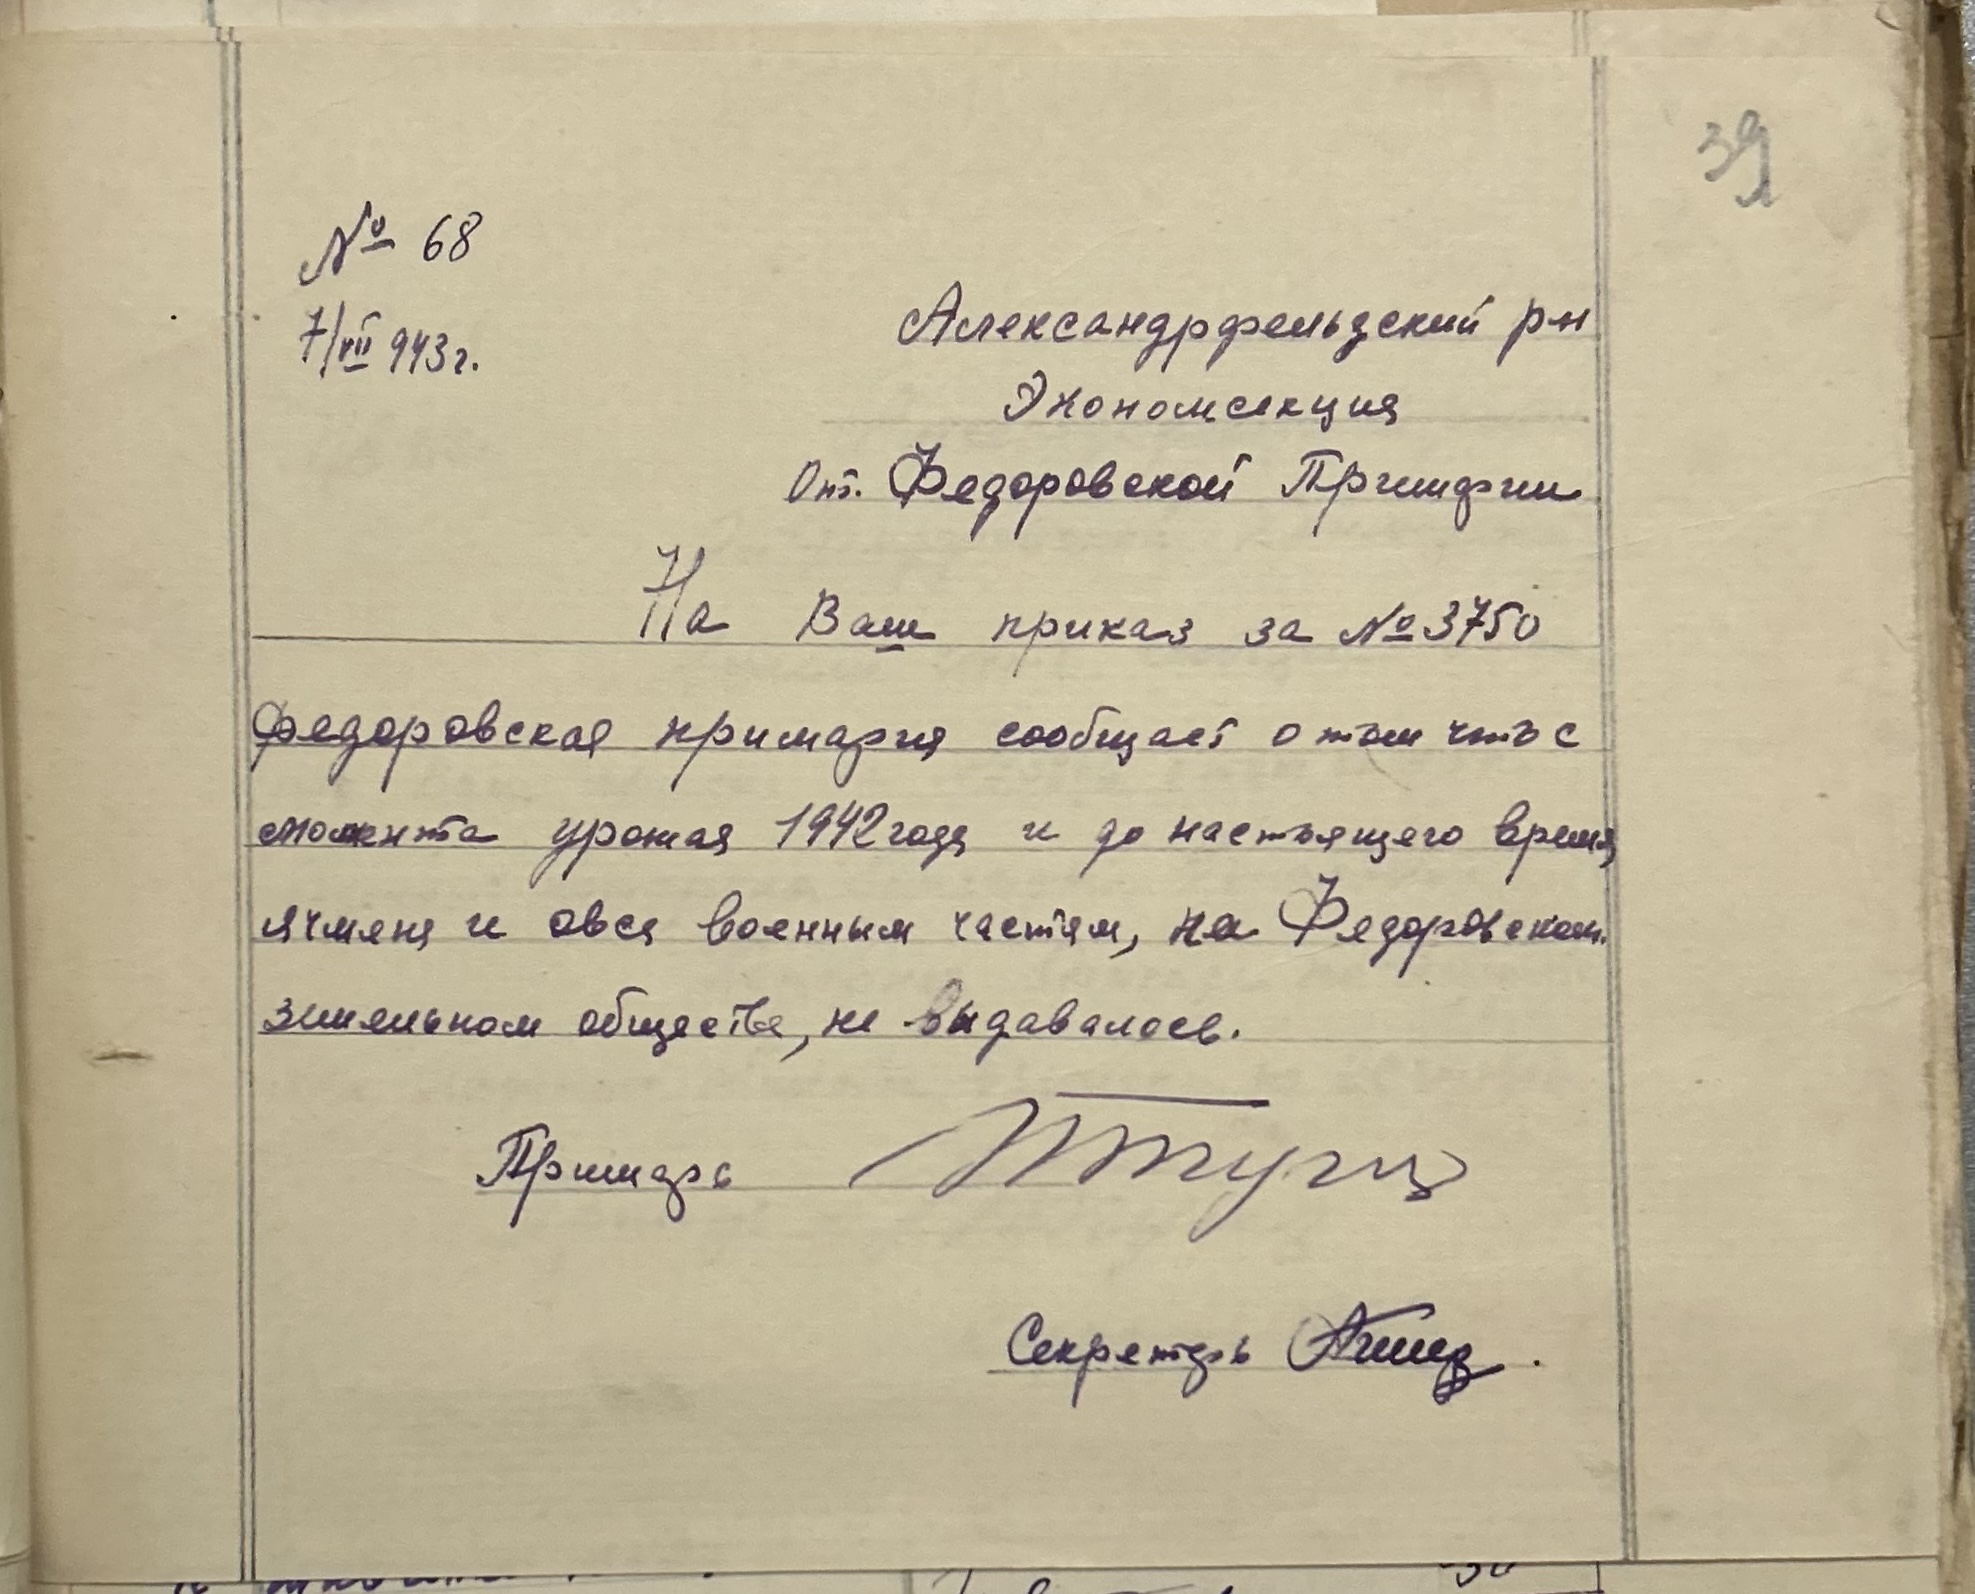 39
№ 68
7/VII 943 г.
Александрфельдский р-н
Экономсекция
От. Федоровской Примарии
На Ваш приказ за № 3750
Федоровская примария сообщает о том что с
момента урожая 1942 года и до настоящего время
ячменя и овса военным частям, на Федоровском
земельном обществе, не выдавалось.
Примарь
Секретарь